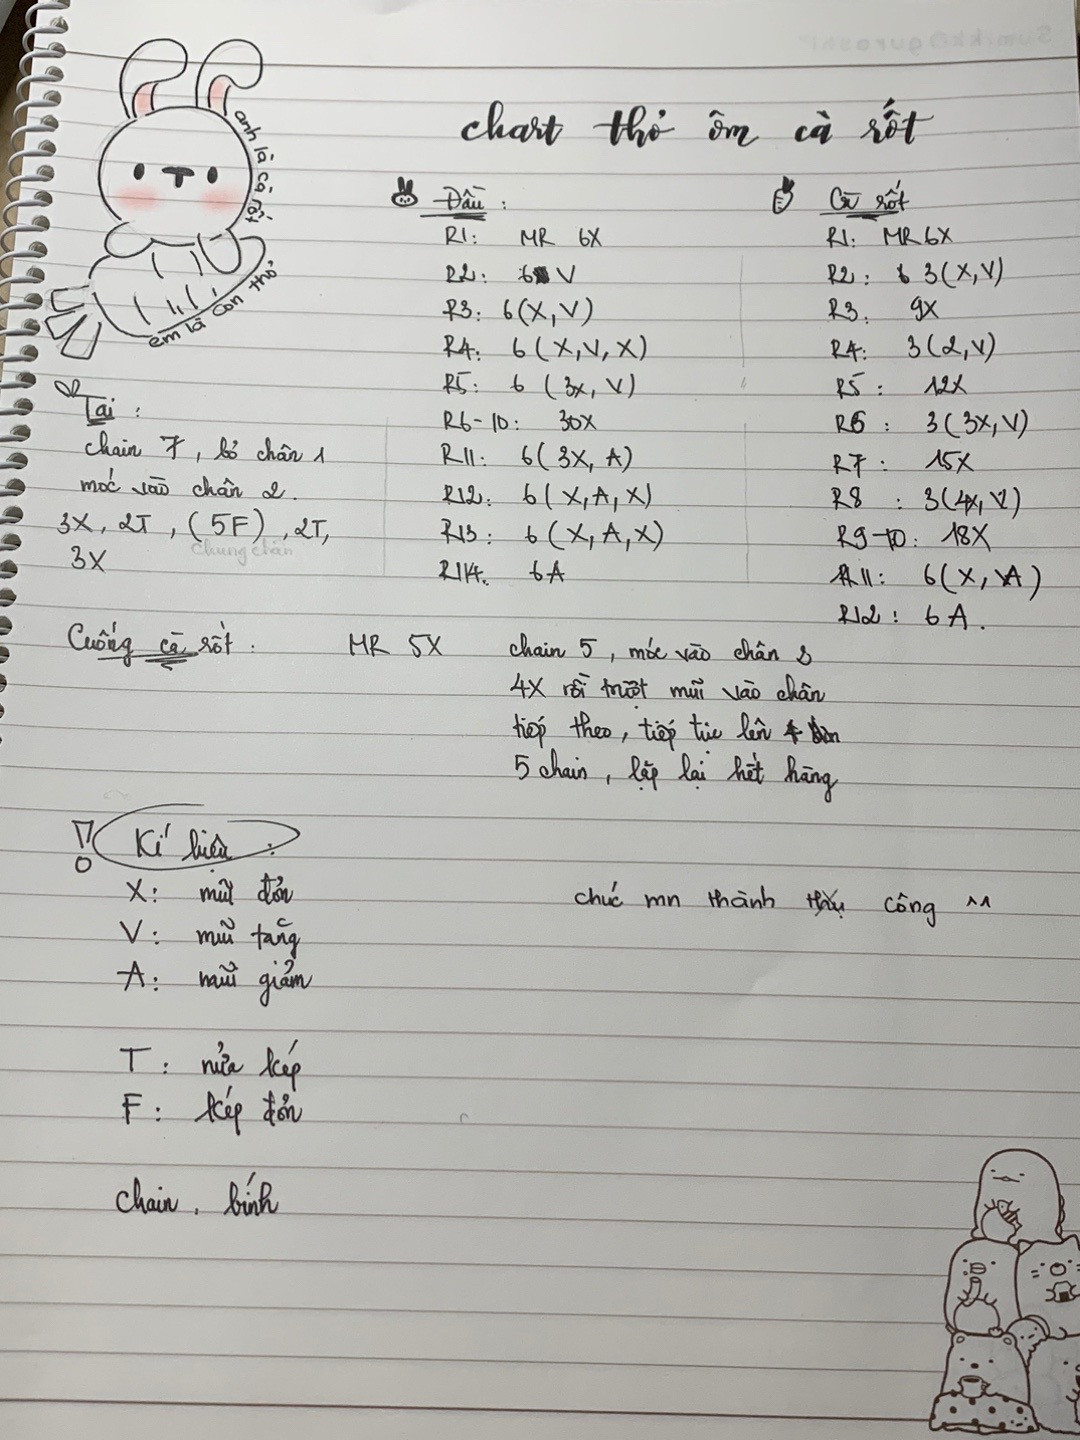 chart thỏ ôm cà rốt
anh là cà rốt
em là con thỏ
Đầu :
R1: MR 6X
R2: 6 V
R3: 6(X,V)
R4: 6 (X,V,X)
R5: 6 (3x, V)
R6-10: 30X
R11: 6(3X, A)
R12: 6(X,A,X)
R13: 6(X,A,X)
R14. 6A
Cà rốt
R1: MR 6X
R2: 3(X,V)
R3: 9X
R4: 3(2,V)
R5: 12X
R6 : 3(3X,V)
R7: 15X
R8 : 3(4x,V)
R9-10: 18X
R11: 6(X, A)
R12: 6A.
Tai :
chain 7, bỏ chân 1
móc vào chân 2.
3X, 2T, (5F), 2T,
chung chân
3X
Cuống cà rốt : MR 5X
chain 5, móc vào chân
4X rồi trượt mũi vào chân
tiếp theo, tiếp tục lên
5 chain, lặp lại hết hàng
Kí hiệu :
X: mũi đơn
V: mũi tăng
A: mũi giảm
T: nửa kép
F: kép đơn
chain. bính
chúc mn thành công ^^